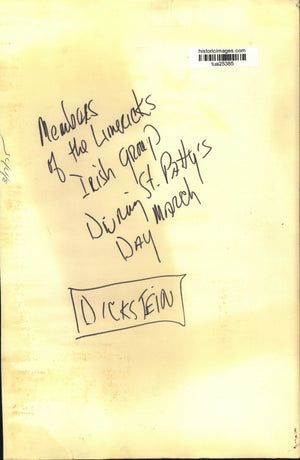 historicimages.com
tua25385
Members
of the Limericks
Irish group
During St. Patty's
Day March
DICKSTEIN